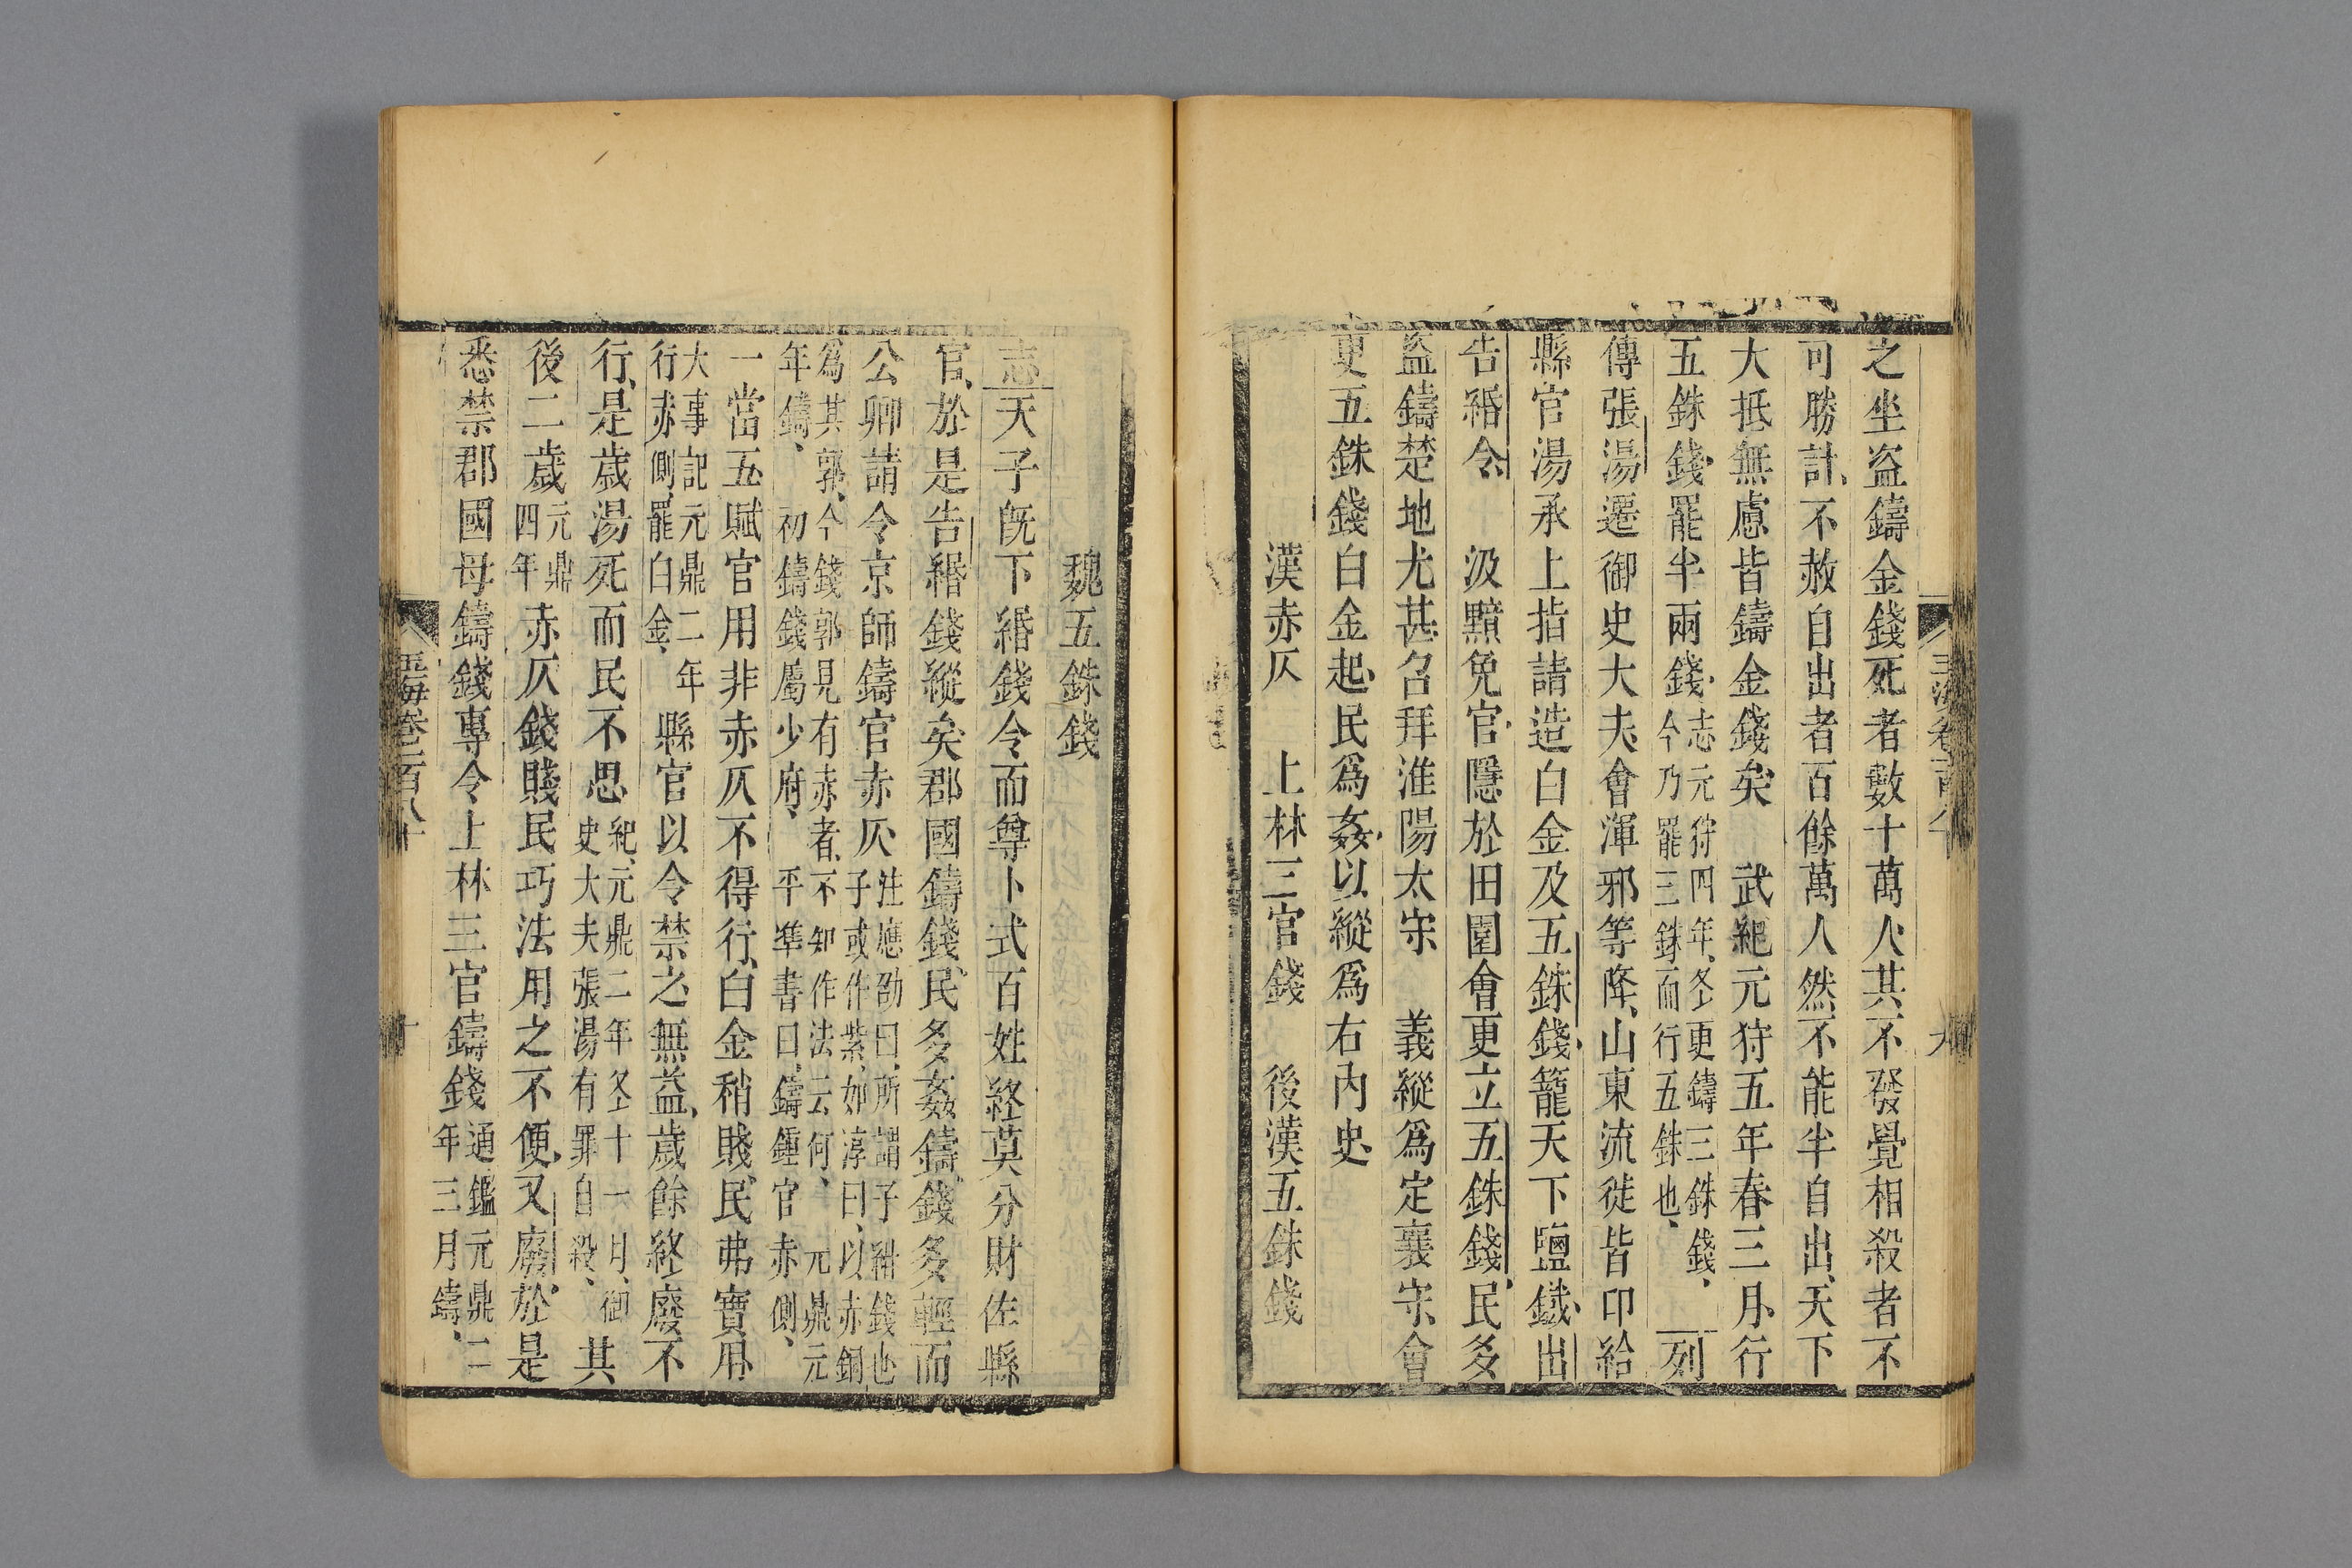 之坐盗鑄金錢死者數十萬人其不發覺相殺者不
可勝計不赦自出者百餘萬人然不能半自出天下
大抵無慮皆鑄金錢矣 武紀元狩五年春三月行
五銖錢罷半兩錢志元狩四年冬更鑄三銖錢今乃罷三銖而行五銖也 列
傳張湯遷御史大夫會渾邪等降山東流徙皆卬給
縣官湯承上指請造白金及五銖錢籠天下鹽鐵出
告緡令 汲黯免官隱於田園會更立五銖錢民多
盗鑄楚地尤甚召拜淮陽太守 義縱爲定襄守會
更五銖錢白金起民爲姦以縱爲右内史
漢赤仄 上林三官錢 後漢五銖錢
魏五銖錢
志天子旣下緡錢令而尊卜式百姓終莫分財佐縣
官於是告緡錢縱矣郡國鑄錢民多姦鑄錢多輕而
公卿請令京師鑄官赤仄注應劭曰所謂子紺錢也子或作紫如淳曰以赤銅
爲其郭今錢郭見有赤者不知作法云何 元鼎元年鑄 初鑄錢屬少府 平準書曰鑄鍾官赤側
一當五賦官用非赤仄不得行白金稍賤民弗寶用
大事記元鼎二年行赤側罷白金縣官以令禁之無益歲餘終廢不
行是歲湯死而民不思紀元鼎二年冬十一月御史大夫張湯有罪自殺其
後二歲元鼎四年赤仄錢賤民巧法用之不便又廢於是
悉禁郡國毋鑄錢專令上林三官鑄錢通鑑元鼎二年三月鑄
玉海卷一百八十
十